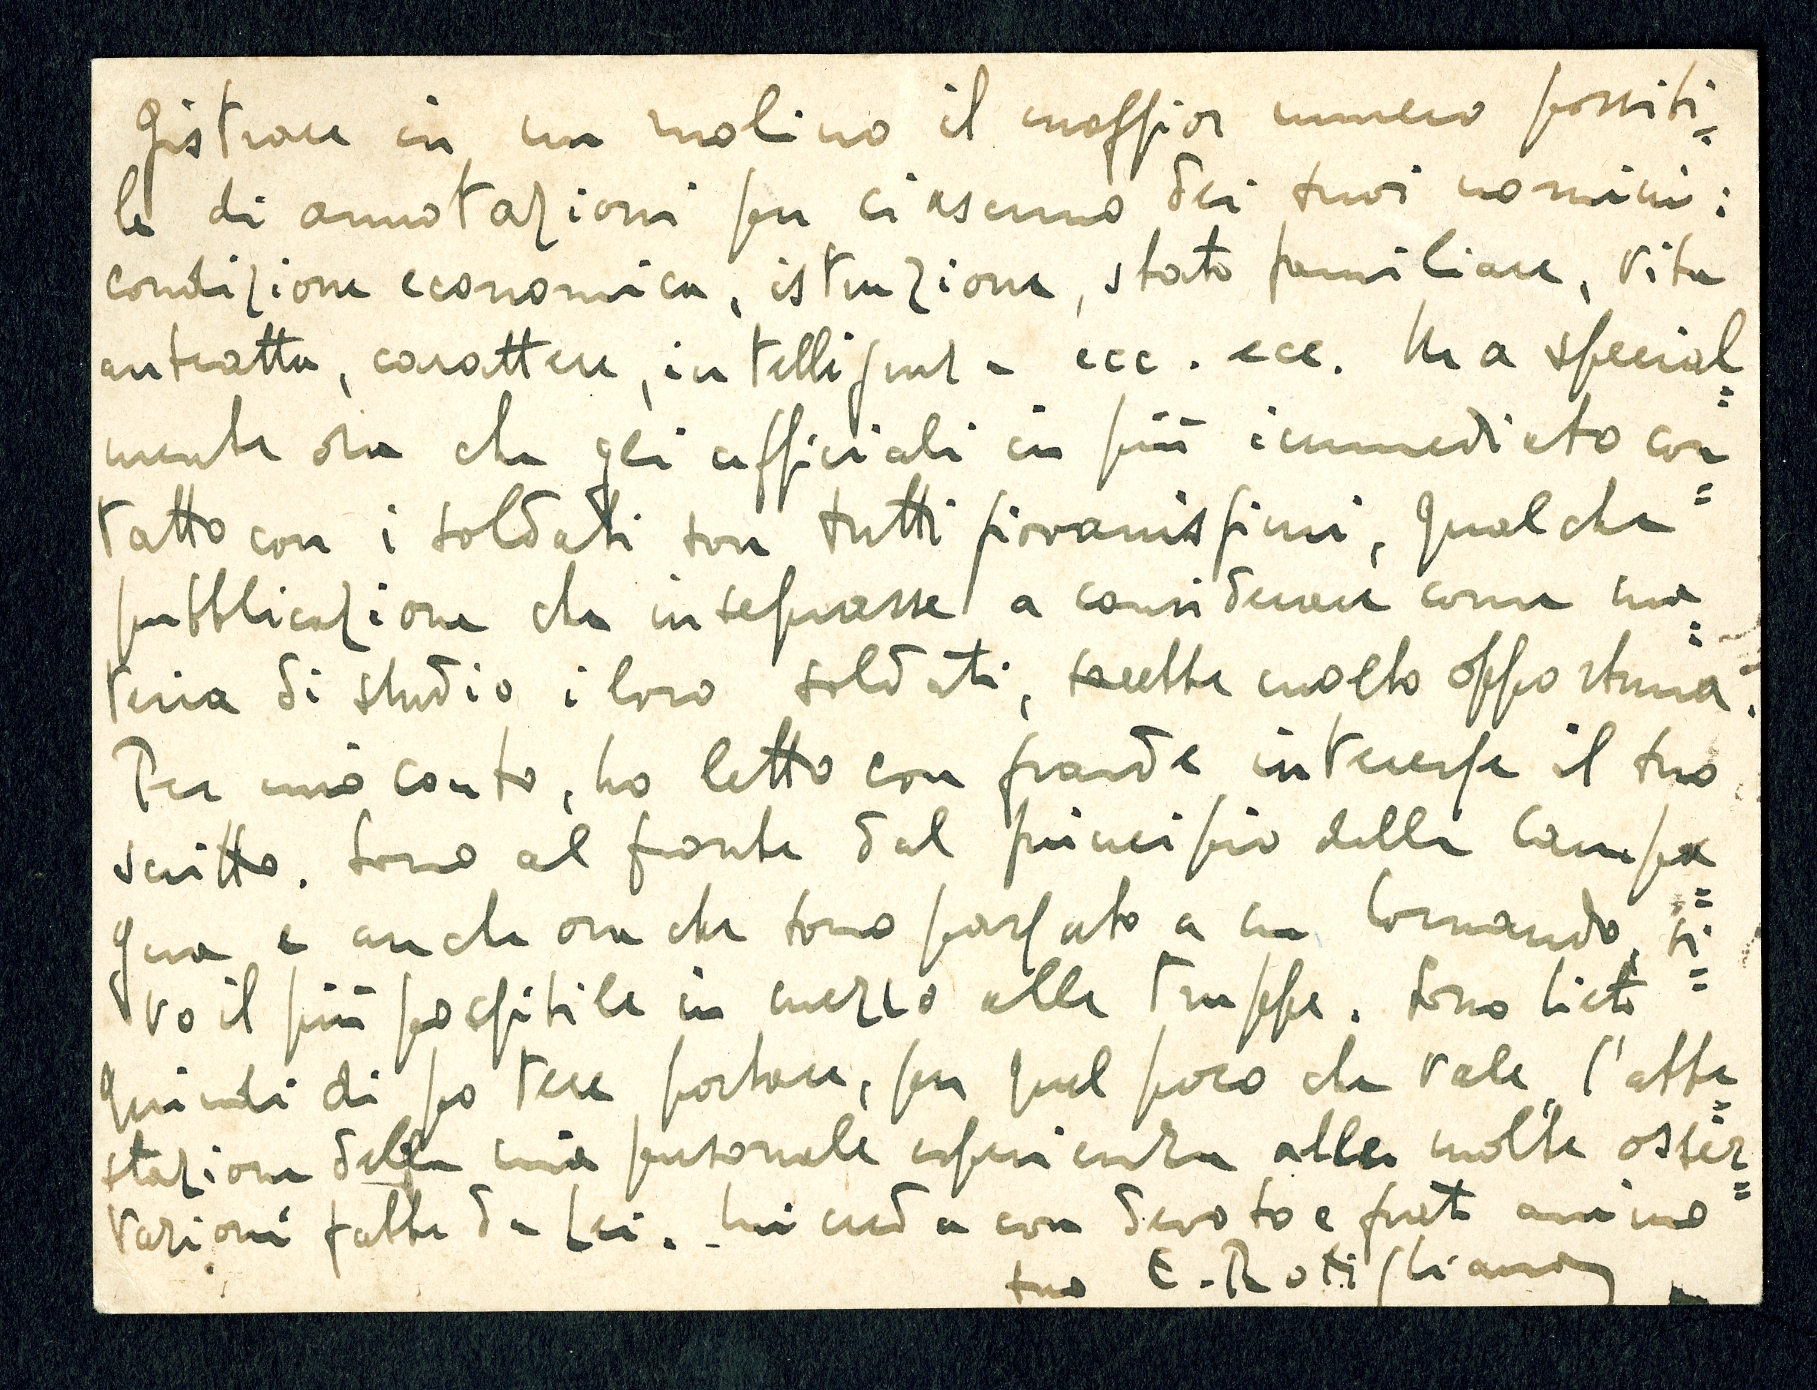 gistrare in un molino il maggior numero possibi=
le di annotazioni per ciascuno dei suoi uomini:
condizione economica, istruzione, stato familiare, vita
antratta, carattere, intelligenza ecc. ecc. Ma special=
mente ora che gli ufficiali in più immediato con=
tatto con i soldati son tutti giovanissimi, qualche
pubblicazione che insegnasse a considerare come ma=
teria di studio i loro soldati, sarebbe molto opportuna.
Per mio conto, ho letto con grande interesse il suo
scritto. Sono al fronte dal principio della Campa=
gna e anche ora che sono passato a un Comando, vi=
vo il più possibile in mezzo alle truppe. Sono lieto
quindi di potere portare, per quel poco che vale, l'atte=
stazione della mia personale esperienza alle molte osser=
vazioni fatte da Lei. Mi creda con devoto e grato animo
suo E. Rotigliano